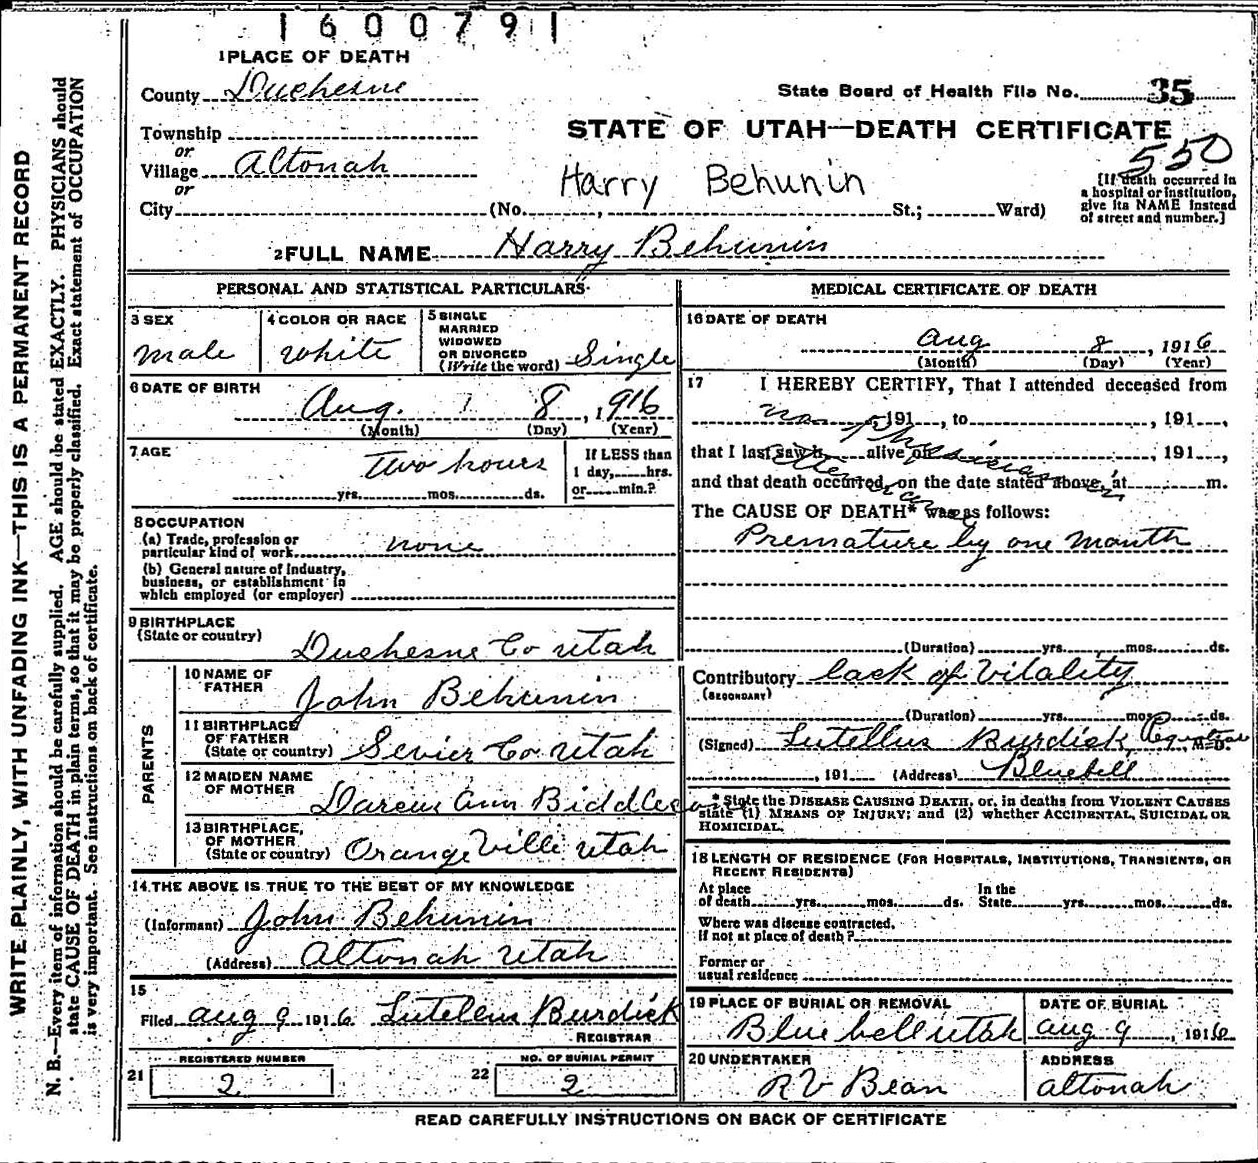 1600791
1 PLACE OF DEATH
County Duchesne
State Board of Health File No. 35
Township
or
Village Altonah
or
STATE OF UTAH—DEATH CERTIFICATE
550
Harry Behunin
[If death occurred in
a hospital or institution,
give its NAME instead
of street and number.]
City (No. , St.; Ward)
2 FULL NAME Harry Behunin
PERSONAL AND STATISTICAL PARTICULARS
3 SEX
male
4 COLOR OR RACE
White
5 SINGLE
MARRIED
WIDOWED
OR DIVORCED
(Write the word) Single
6 DATE OF BIRTH
Aug. 8, 1916
(Month) (Day) (Year)
7 AGE
two hours
yrs. mos. ds.
If LESS than
1 day, hrs.
or min.?
8 OCCUPATION
(a) Trade, profession or
particular kind of work none
(b) General nature of Industry,
business, or establishment in
which employed (or employer)
9 BIRTHPLACE
(State or country) Duchesne Co Utah
PARENTS
10 NAME OF
FATHER John Behunin
11 BIRTHPLACE
OF FATHER
(State or country) Sevier Co Utah
12 MAIDEN NAME
OF MOTHER Ann
13 BIRTHPLACE,
OF MOTHER
(State or country) OrangeVille Utah
14 THE ABOVE IS TRUE TO THE BEST OF MY KNOWLEDGE
(Informant) John Behunin
(Address) Altonah Utah
15
Filed Aug 9 1916 Lutellus Burdick
REGISTRAR
21 REGISTERED NUMBER
2
22 NO. OF BURIAL PERMIT
2
MEDICAL CERTIFICATE OF DEATH
16 DATE OF DEATH
Aug 8, 1916
(Month) (Day) (Year)
17 I HEREBY CERTIFY, That I attended deceased from
no , 191 , to , 191 ,
Physician
that I last saw h alive on , 191 ,
and that death occurred, on the date stated above, at m.
The CAUSE OF DEATH* was as follows:
Premature by one month
(Duration) yrs. mos. ds.
Contributory lack of Vitality
(SECONDARY)
(Duration) yrs. mos. ds.
(Signed) Lutellus Burdick, Registrar, M.D.
, 191 (Address) Bluebell
* State the DISEASE CAUSING DEATH, or, in deaths from VIOLENT CAUSES
state (1) MEANS OF INJURY; and (2) whether ACCIDENTAL, SUICIDAL OR
HOMICIDAL.
18 LENGTH OF RESIDENCE (FOR HOSPITALS, INSTITUTIONS, TRANSIENTS, OR
RECENT RESIDENTS)
At place
of death yrs. mos. ds.
In the
State yrs. mos. ds.
Where was disease contracted,
If not at place of death?
Former or
usual residence
19 PLACE OF BURIAL OR REMOVAL
Bluebell Utah
DATE OF BURIAL
Aug 9, 1916
20 UNDERTAKER
R V Bean
ADDRESS
Altonah
READ CAREFULLY INSTRUCTIONS ON BACK OF CERTIFICATE
WRITE PLAINLY, WITH UNFADING INK—THIS IS A PERMANENT RECORD
N. B.—Every item of information should be carefully supplied. AGE should be stated EXACTLY. PHYSICIANS should
state CAUSE OF DEATH in plain terms, so that it may be properly classified. Exact statement of OCCUPATION
is very important. See instructions on back of certificate.